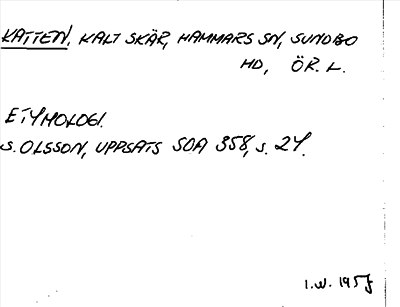 KATTEN, KALT SKÄR, HAMMARS SN, SUNDBO
HD, ÖR. L.
ETYMOLOGI.
S. OLSSON, UPPSATS SOA 358, S. 24.
I.W. 1957